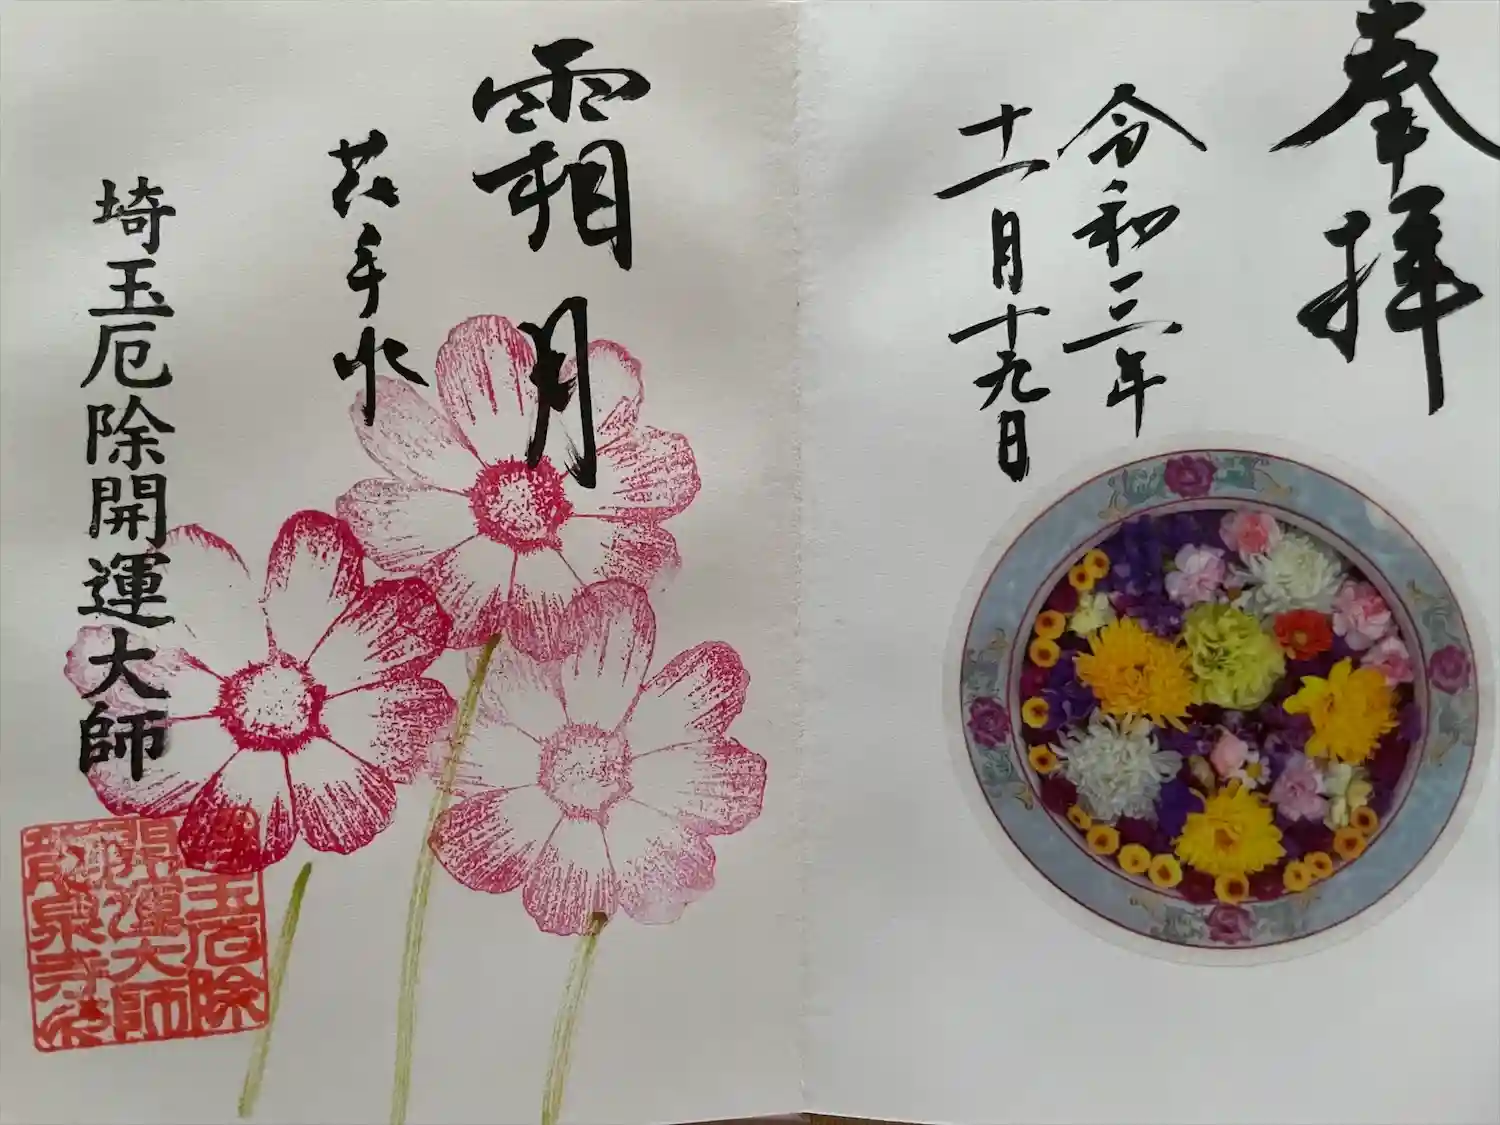 奉拝
令和三年
十一月十九日
霜月
花手水
埼玉厄除開運大師
埼玉厄除
開運大師
龍泉寺印